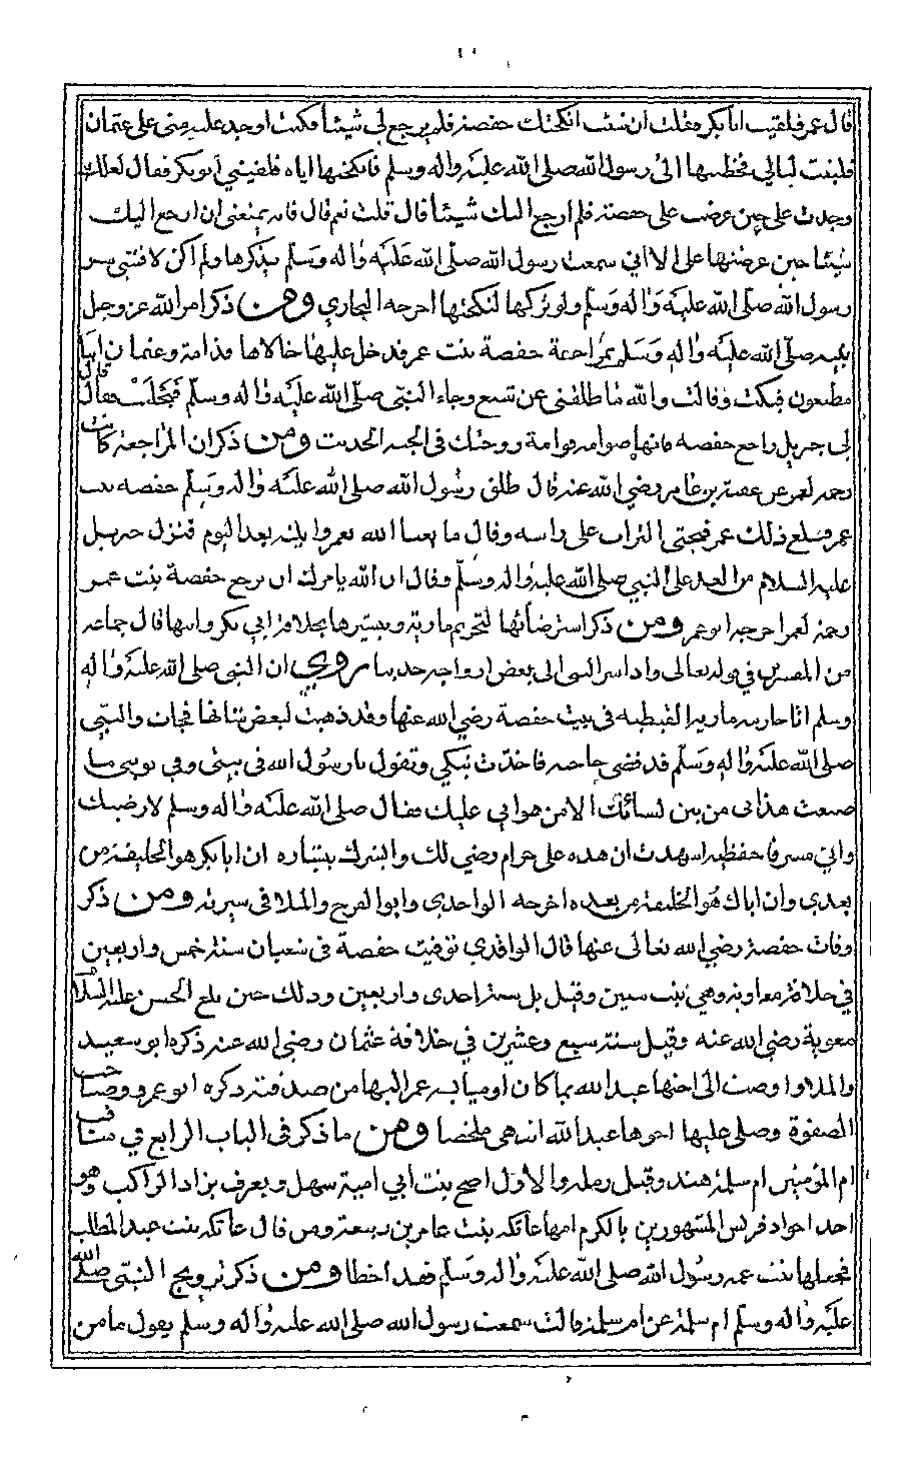 قال عمر فلقيت ابا بكر فقلت ان شئت انكحتك حفصة فلم يرجع لي شيئا فكنت اوجد عليه مني على عثمان
فلبثت ليالي فخطبها الى رسول الله صلى الله عليه واله وسلم فانكحتها اياه فلقيني ابو بكر فقال لعلك
وجدت علي حين عرضت علي حفصة فلم ارجع اليك شيئا قال قلت نعم قال فانه يمنعني ان ارجع اليك
شيئا حين عرضتها علي الا اني سمعت رسول الله صلى الله عليه واله وسلم يذكرها ولم اكن لافشي سر
رسول الله صلى الله عليه واله وسلم ولو تركها لنكحتها اخرجه البخاري ومن ذكر امر الله عز وجل
نبيه صلى الله عليه واله وسلم بمراجعة حفصة بنت عمر فدخل عليها خالاها قدامة وعثمان ابنا
مظعون فبكت وقالت والله ما طلقني عن شبع وجاء النبي صلى الله عليه واله وسلم فتجلببت فقال قال
لي جبريل راجع حفصة فانها صوامة قوامة وزوجتك في الجنة الحديث ومن ذكر ان المراجعة كانت
رحمة لعمر عن عقبة بن عامر رضي الله عنه قال طلق رسول الله صلى الله عليه واله وسلم حفصة بنت
عمر فبلغ ذلك عمر فحثى التراب على راسه وقال ما يعبا الله بعمر وابنته بعد اليوم فنزل جبريل
عليه السلام من الغد على النبي صلى الله عليه واله وسلم وقال ان الله يامرك ان ترجع حفصة بنت عمر
رحمة لعمر اخرجه ابو عمر ومن ذكر استرضائها لتحريم مارية وتبشيرها بخلافة ابي بكر وابيها قال جماعة
من المفسرين في قوله تعالى واذ اسر النبي الى بعض ازواجه حديثا روي ان النبي صلى الله عليه واله
وسلم اتا جاريته مارية القبطية في بيت حفصة رضي الله عنها وقد ذهبت لبعض شانها فجات والنبي
صلى الله عليه واله وسلم قد قضى حاجته فاخذت تبكي وتقول يا رسول الله في بيتي وفي نوبتي ما
صنعت هذا بي من بين نسائك الا من هواني عليك فقال صلى الله عليه واله وسلم لارضينك
واني مسر فاحفظيه اشهدك ان هذه علي حرام رضي لك وابشرك ببشارة ان ابا بكر هو الخليفة من
بعدي وان اباك هو الخليفة من بعده اخرجه الواحدي وابو الفرج والملا في سيرته ومن ذكر
وفات حفصة رضي الله تعالى عنها قال الواقدي توفيت حفصة في شعبان سنة خمس واربعين
في خلافة معاوية وهي بنت ستين وقيل بل سنة احدى واربعين وذلك حين بايع الحسن عليه السلام
معوية رضي الله عنه وقيل سنة سبع وعشرين في خلافة عثمان رضي الله عنه ذكره ابو سعيد
والملا واوصت الى اخيها عبد الله بما كان اوصا به عمر اليها من صدقته ذكره ابو عمرو وصاحب
الصفوة وصلى عليها اخوها عبد الله انتهى ملخصا ومن ما ذكر في الباب الرابع في مناقب
ام المؤمنين ام سلمة هند وقيل رملة والاول اصح بنت ابي امية سهل ويعرف بزاد الراكب وهو
احد اجواد قريش المشهورين بالكرم امها عاتكة بنت عامر بن ربيعة ومن قال عاتكة بنت عبد المطلب
فجعلها بنت عمة رسول الله صلى الله عليه واله وسلم فقد اخطا ومن ذكر تزويج النبي صلى الله
عليه واله وسلم ام سلمة عن ام سلمة قالت سمعت رسول الله صلى الله عليه واله وسلم يقول ما من